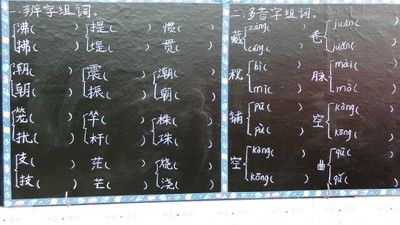 一、辨字组词。
沸( ) 提( ) 惯( )
拂( ) 堤( ) 贯( )
潮( ) 震( ) 潮( )
朝( ) 振( ) 朝( )
( ) 竿( ) 株( )
扰( ) 杆( ) 珠( )
( ) 茫( ) 烧( )
技( ) 芒( ) 浇( )
二、多音字组词。
藏 zàng( ) cáng( )
卷 juǎn( ) juàn( )
秘 bì( ) mì( )
脉 mài( ) mò( )
铺 pū( ) pù( )
空 kòng( ) kōng( )
空 kòng( ) kōng( )
曲 qū( ) qǔ( )